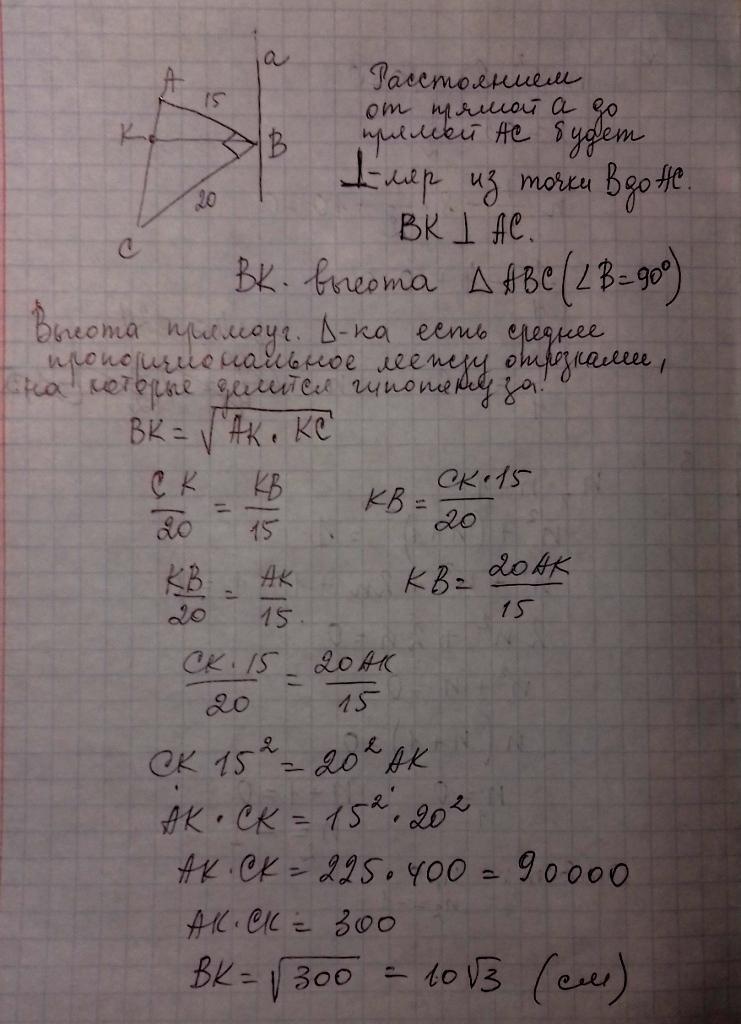 a
A
15
K
B
20
C
Расстоянием
от прямой a до
прямой AC будет
⊥-ляр из точки B до AC.
BK ⊥ AC.
BK - высота △ ABC (∠B=90°)
Высота прямоуг. Δ-ка есть среднее
пропорциональное между отрезками,
на которые делится гипотенуза.
BK = √(AK · KC)
CK/20 = KB/15     KB = CK·15/20
KB/20 = AK/15.     KB = 20AK/15
CK·15/20 = 20AK/15
CK 15² = 20² AK
AK · CK = 15² · 20²
AK · CK = 225 · 400 = 90000
AK · CK = 300
BK = √300 = 10√3 (см)